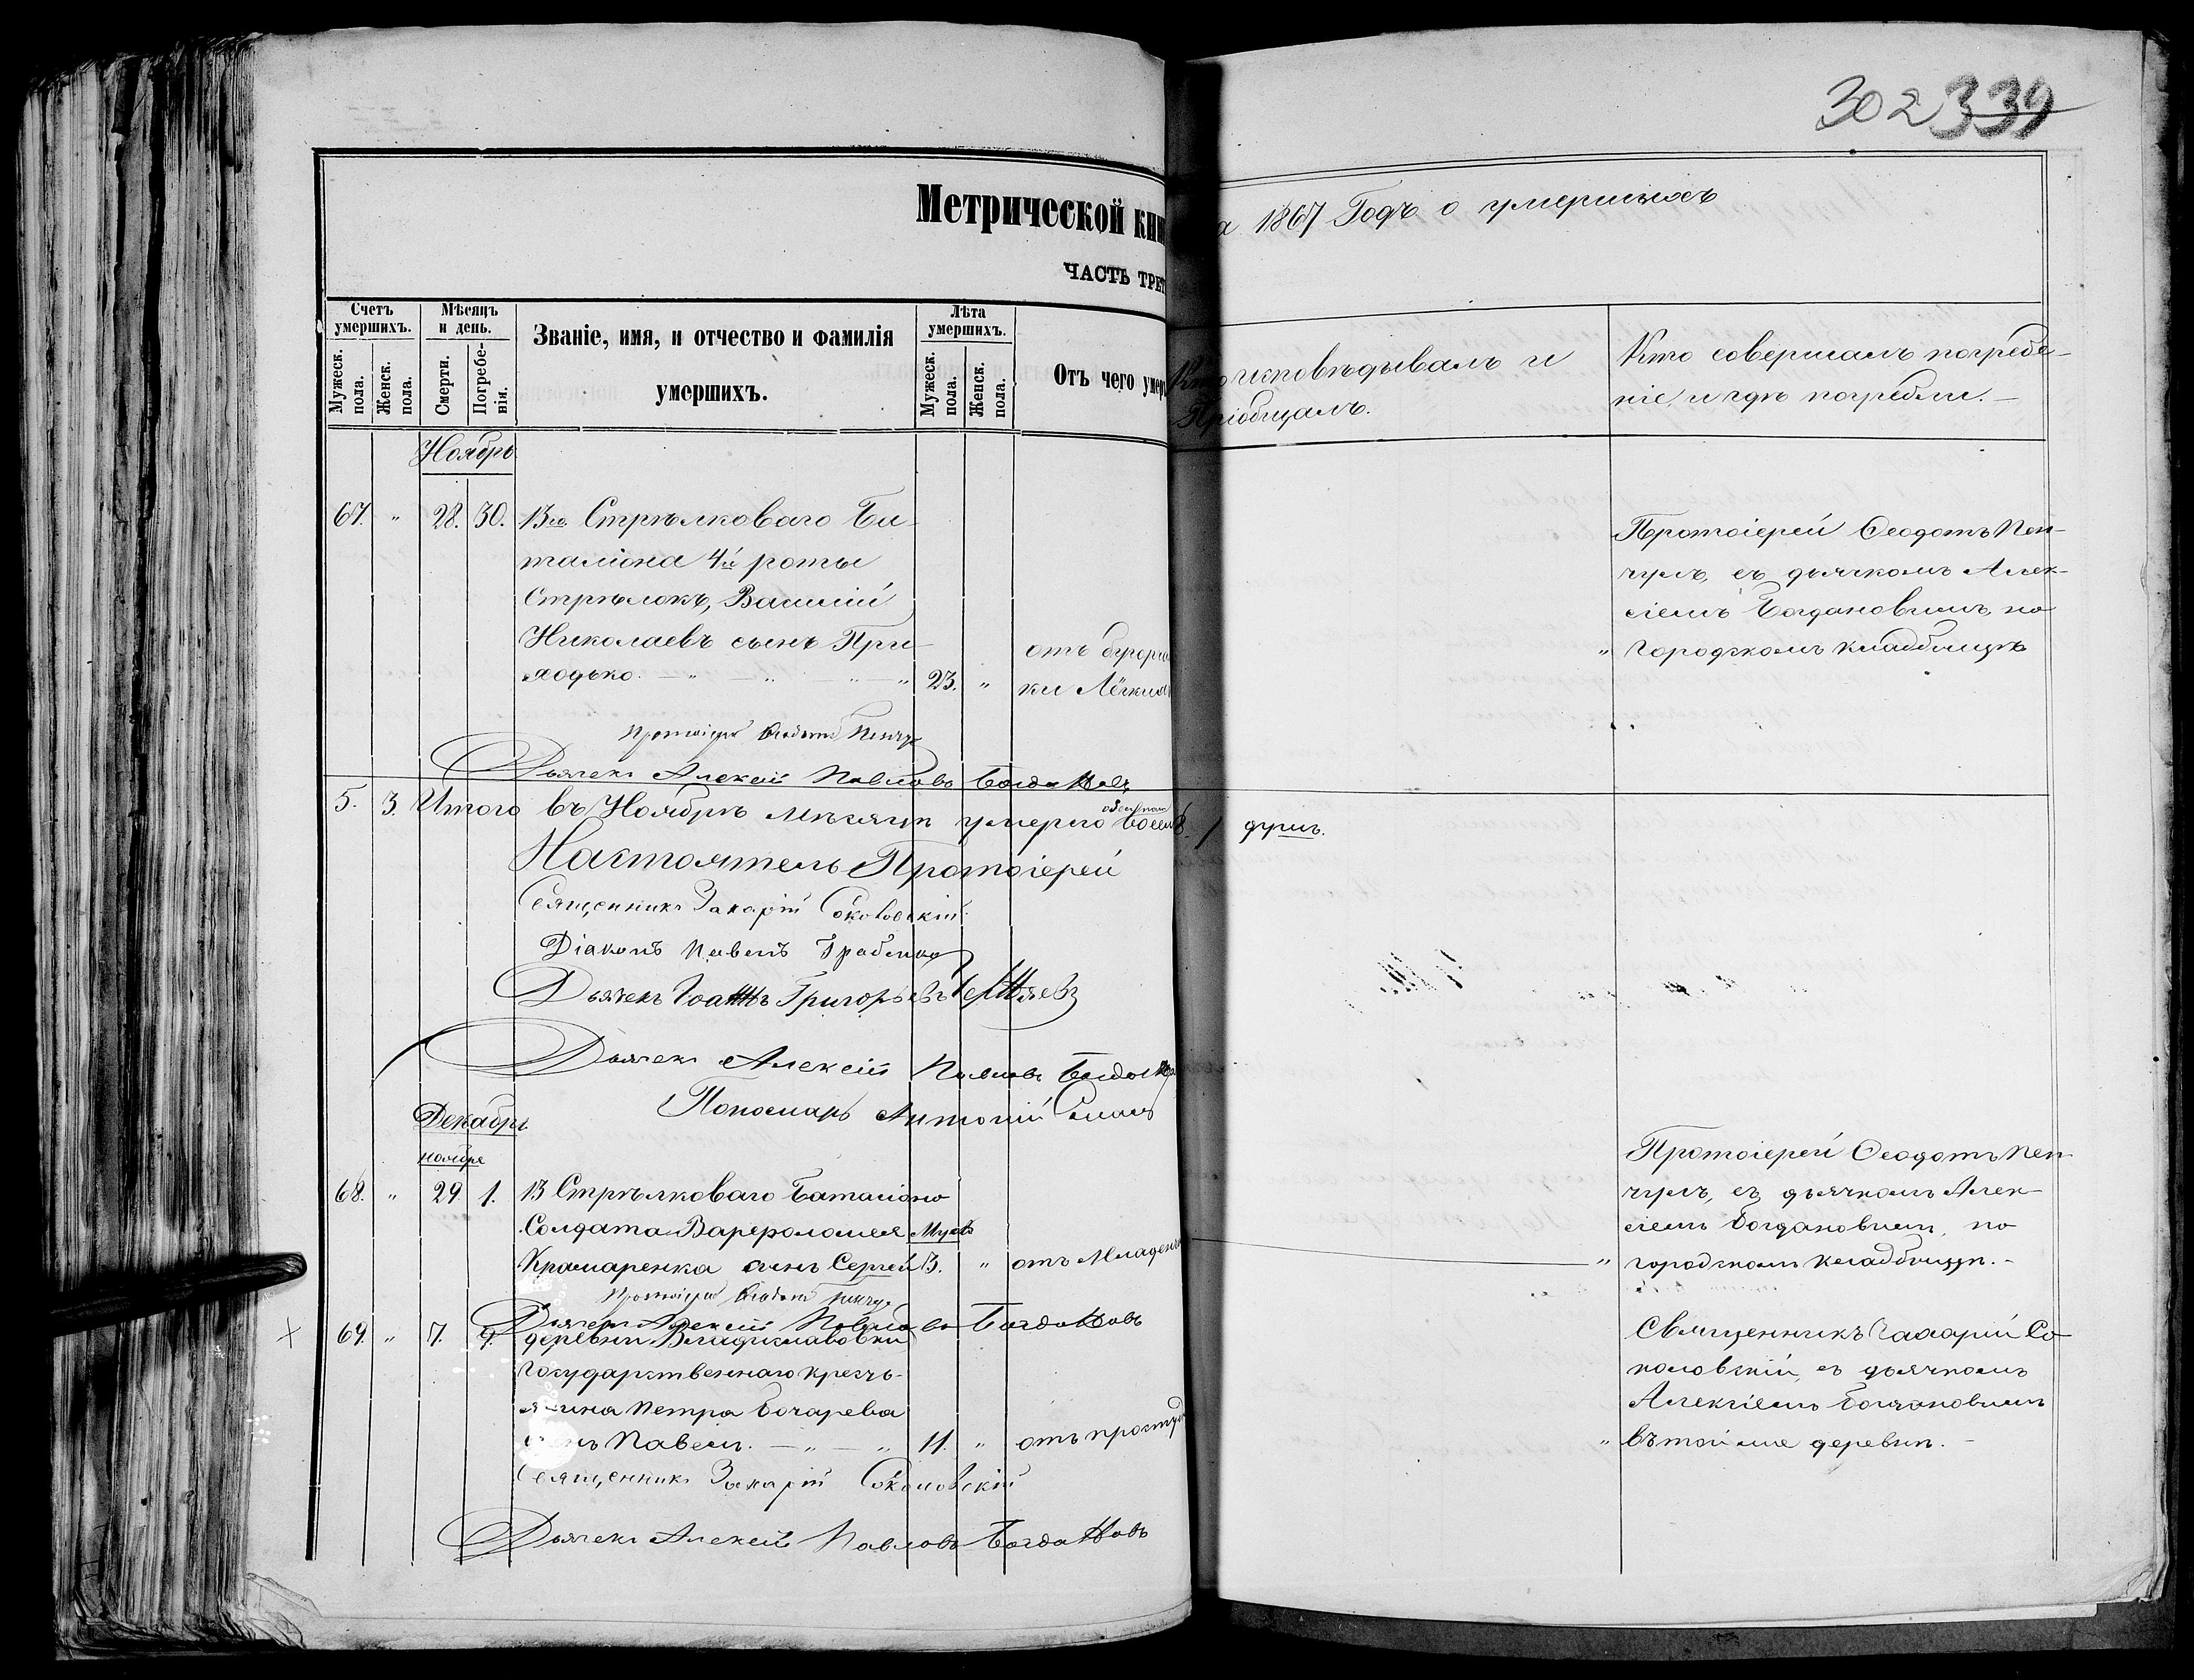 302 339
Метрической кни
а 1867 Годъ о умершихъ
ЧАСТЬ ТРЕТ
Счетъ умершихъ.
Мѣсяцъ и день.
Званіе, имя, и отчество и фамилія умершихъ.
Лѣта умершихъ.
Отъ чего умер
Кто исповѣдывалъ и
Пріобщалъ.
Кто совершалъ погребе-
ніе и гдѣ погребли.
Мужеск. пола.
Женск. пола.
Смерти.
Погребе-
нія.
Мужеск. пола.
Женск. пола.
Ноябрь
67. " 28. 30. 13го Стрѣлковаго Ба-
таліона 4й роты
Стрѣлокъ, Василій
Николаевъ сынъ При-
ходько. 23. "
отъ бугор
ки Лёгких
Протоіерей Ѳеодотъ Пен-
чулъ, съ дьячкомъ Алек-
сіемъ Богдановымъ, на
" городскомъ кладбищѣ
Протоіерей Ѳеодотъ
Дьячекъ Алексій Павловъ Богдановъ
5. 3. Итого въ Ноябрѣ мѣсяцѣ умерло обоего пола восемь 8. душъ.
Настоятель Протоіерей
Священникъ Захарій Соколовскій
Діаконъ Павелъ
Дьячекъ Іоаннъ Григорьевъ
Дьячекъ Алексій Павловъ Богданов
Пономарь Антоній
Декабрь
ноября
68. " 29. 1. 13 Стрѣлковаго Баталіона
Солдата Варфоломея
Крамаренка сынъ Сергей 3. " отъ Младенч
Протоіерей Ѳеодотъ Пен-
чулъ, съ дьячкомъ Алек-
сіемъ Богдановым, на
" городскомъ кладбищѣ.
Протоіерей Ѳеодотъ
Дьячекъ Алексій Павловъ Богдановъ
69. " 7. 9. деревни Владиславовки
Государственнаго кресть-
янина Петра Бочарева
сынъ Павелъ. 11. " отъ простуд
Священникъ Захарій Со-
коловскій, съ дьячкомъ
Алексіемъ Богдановымъ
" въ той же деревнѣ.
Священникъ Захарій Соколовскій
Дьячекъ Алексій Павловъ Богдановъ